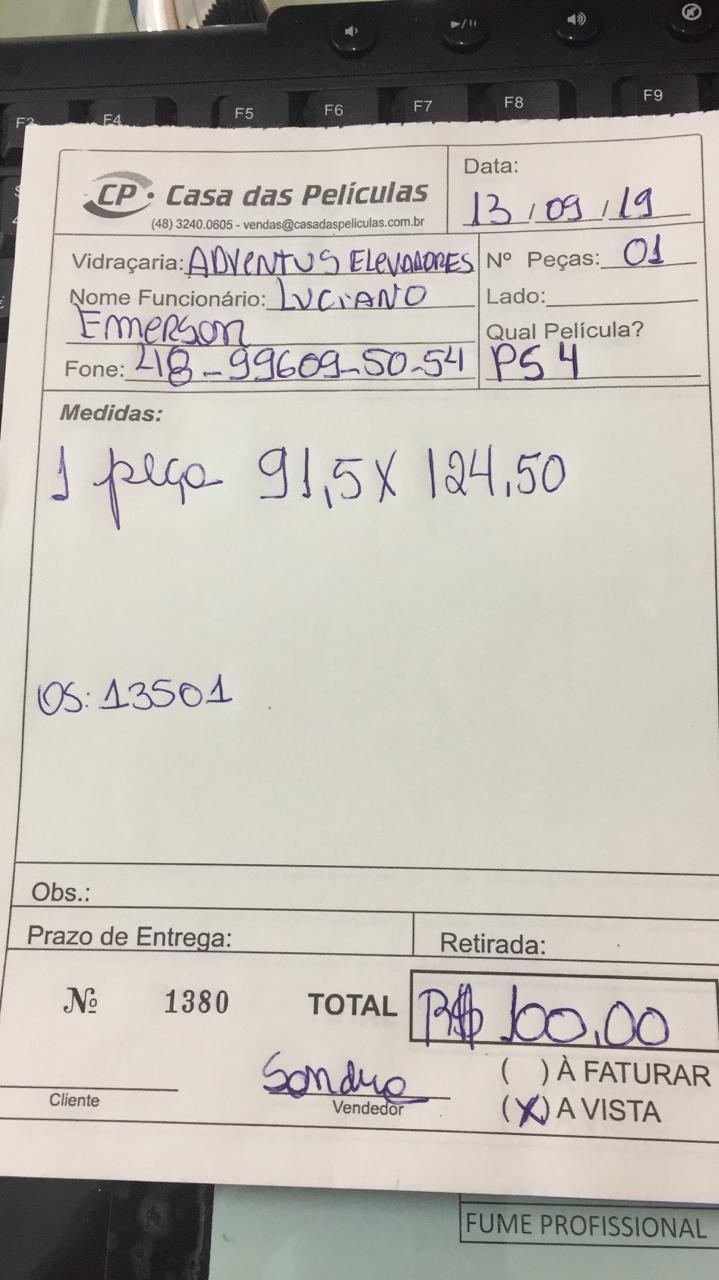 F3 F4 F5 F6 F7 F8 F9
CP Casa das Películas
(48) 3240.0605 - vendas@casadaspeliculas.com.br
Data:
13 / 09 / 19
Vidraçaria: ADVENTUS ELEVADORES
Nº Peças: 01
Nome Funcionário: LUCIANO
Lado:
Emerson
Qual Película?
Fone: 48-99609-50-54
PS4
Medidas:
1 peça 91,5 X 124,50
OS: 13501
Obs.:
Prazo de Entrega:
Retirada:
Nº 1380
TOTAL R$ 100,00
( ) À FATURAR
Cliente
Vendedor
(X) A VISTA
FUME PROFISSIONAL